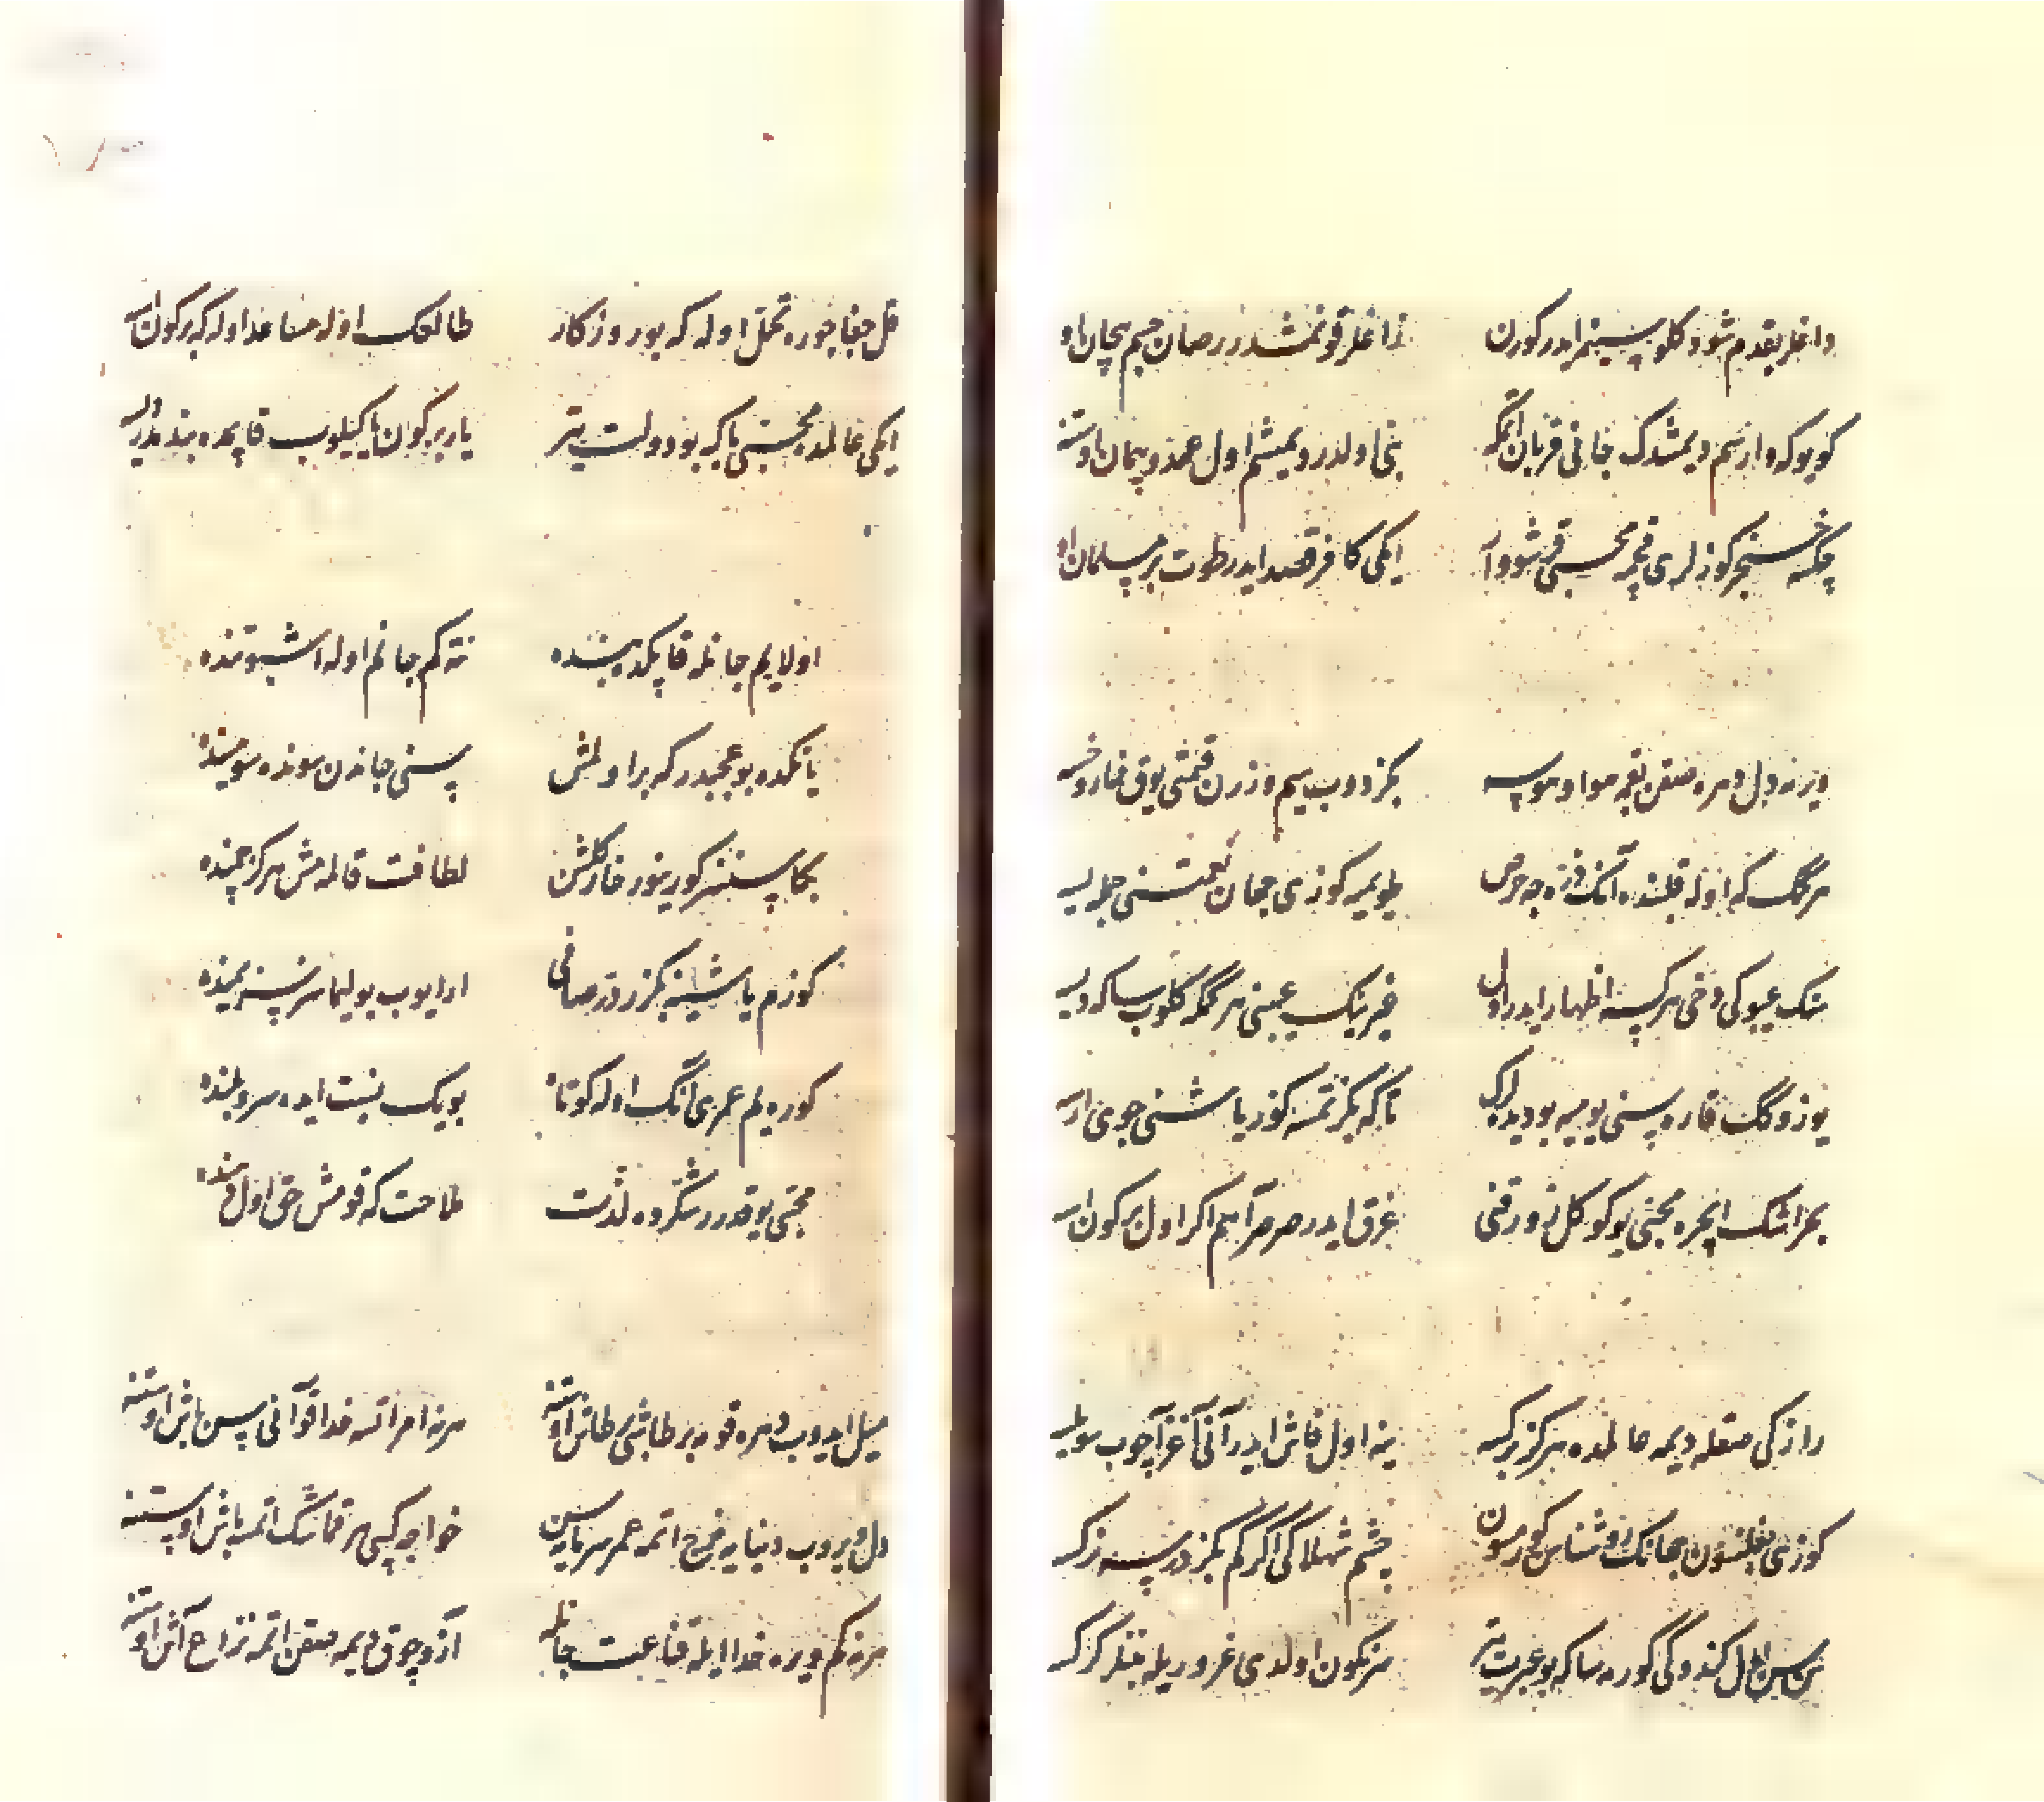 داغلر یقدم شو دکلو سینه‌م ایدر کورن
زاغلر قونمشدرر صان جسم بیجان اوستنه
کویوکه وارسم دیمشدک جانی قربان اتمکه
بنی اولدر دیمشم اول عهد و پیمان اوستنه
چکسه خنجر کوزلری قچمه محبی قرشو وار
ایکی کافر قصد ایدر طوت بر مسلمان اوستنه
ویرمه دل دهره صقن بقمه هوا و هوسه
بکزدوب سیم و زرن قیمتی یوق خار و خسه
هر کمک که اوله قلبنده انک ذره جه حرص
طویمیه کوزی جهان نعمتنی جمله یسه
سنک عیبوکی دخی هر کسه اظهار ایدر اول
غیرینک عیبنی هر کمکه کلوب ساکه دیسه
یوزوکک قاره سنی یومیه بو دیدلرک
تا که بکزتمسه کوز یاشنی جوی ارسه
بحر اشک ایچره محبی بو کوکل زورقنی
غرق ایدر صرصر آهم اکر اول بر کون اسه
رازکی صقله دیمه عالمده هرکز بر کسه
ینه اول فاش ایدر آنی آغز آچوب سویلسه
کوزی یغلسون جهانک روشناسن کورمسون
چشم شهلاکی اکر کم بکزدرسه نرکسه
سن سن اول کندوکی کورمه ساکه بو عبرت یتر
سرنکون اولدی غروریله بتلر کرکسه
قل جفا جورره تحمل اوله که بو روزکار
طالعک اوله مساعد اوله که بر کون اسه
ایکی عالمده محبی باکه بو دولت یتر
یار بر کون باکیلوب قاپمده بنده‌مدر دسه
اولایم جانله قاپکده بنده
نته کم جانم اوله اشبو تنده
یانکده بو عجبدر که بر اولمش
سنی جاندن سونده سومینده
بکا سنسز کورینور خار کلشن
لطافت قالمه‌مش هرکز چمنده
کوزم یاشینه بکزر در صافی
ارایوب بولیماسز سز یمنده
کوره‌یلم عمری آنک اوله کوتاه
بویک نسبت ایده سرو بلنده
محبی یوقدرر شکرده لذت
ملاحت که قومش حق اول دهنده
میل ایدوب دهره قومه بر طاشی طاش اوستنه
هر نه امر اتسه خدا قو آنی سن باش اوستنه
دل ویروب دنیایه خرج اتمه عمر سرمایه‌سن
خواجه کبی هر قماشک اتمه باش اوستنه
هر نه کم ویره خدا ایله قناعت جانله
آز و چوق دیمه صقن اتمه نزاع آش اوستنه